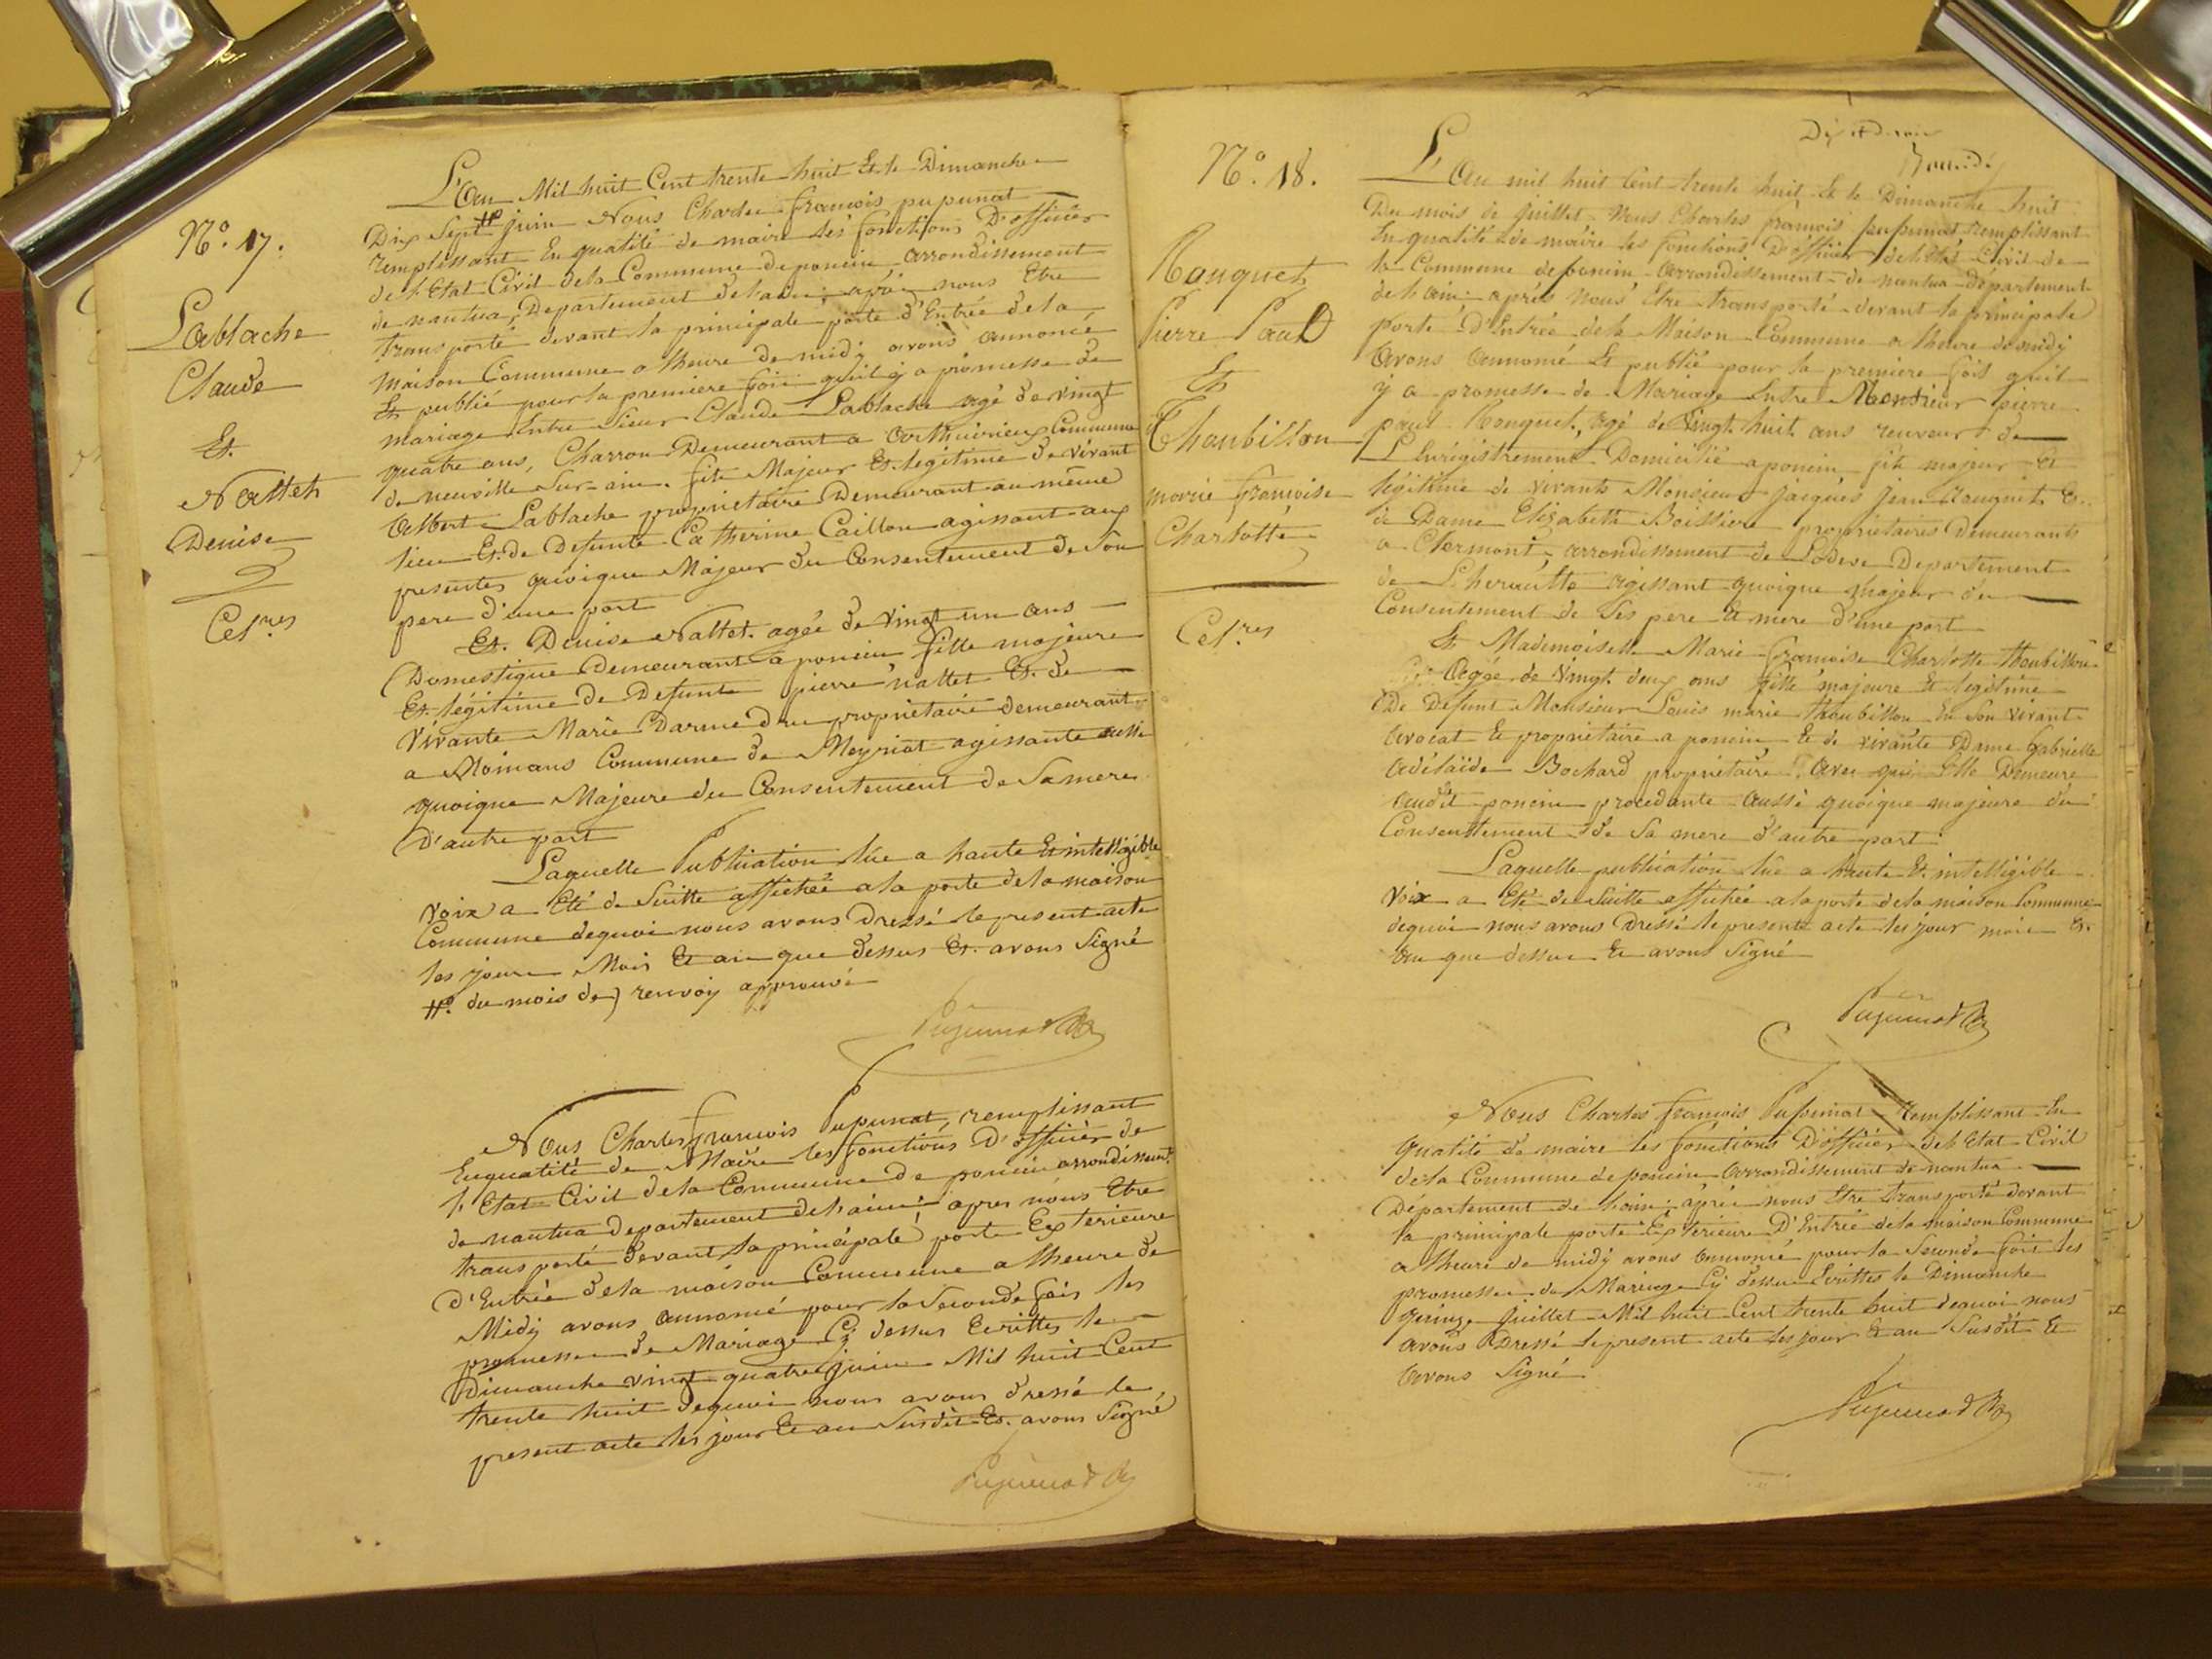 N.o 17.
Lablache
Claude
Et.
Nallet
Denise
Cel.res
L'an Mil huit Cent trente huit Et le Dimanche
Dix Sept juin Nous Charles françois pupunat
remplissant En qualité de maire les fonctions D'officier
de l'Etat Civil dela Commune de poncin arrondissement
de nantua, Departement delain, après nous Etre
transporté devant la principale porte d'Entrée dela
maison Commune a lheure de midy avons annoncé
Et publié pour la premiere fois quil y a promesse de
mariage Entre Sieur Claude Lablache agé de vingt
quatre ans, Charron Demeurant a Commune
de neuville Sur-ain. fils Majeur Et legitime de vivant
Albert Lablache propriétaire Demeurant au même
lieu Et de Defunte Catherine Caillon agissant aux
presentes quoique Majeur du Consentement de Son
pere d'une part
Et. Denise Nallet. agée de vingt un ans
Domestique Demeurant a poncin fille majeure
Et légitime de Defunt pierre nallet Et. de
Vivante Marie propriétaire demeurant
a Commune de Meyriat agissante aussi
quoique Majeure du Consentement de Sa mere
D'autre part
Laquelle Publication lue a haute Et intelligible
Voix a Eté de Suitte affichée ala porte dela maison
Commune dequoi nous avons Dressé le present acte
les jour Mois Et an que dessus Et. avons Signé
du mois de) renvoy approuvé
Pupunat
Nous Charles françois Pupunat, remplissant
En qualité de Maire les fonctions D'officier de
l'Etat Civil dela Commune de poncin arrondissemt.
de nantua departement delain après nous Etre
transporté devant la principale porte Exterieure
D'Entrée dela maison Commune a lheure de
Midy avons annoncé pour la Seconde fois les
promesses de Mariage Cy dessus Ecrittes le
Dimanche vingt quatre juin Mil huit Cent
trente huit dequoi nous avons dressé le
present acte les jour Et an Susdit Et. avons Signé
Pupunat
N.o 18.
Rouquet
Pierre Paul
Et
Thoubillon
marie françoise
Charlotte
Cel.res
L'An mil huit Cent trente huit Et le Dimanche huit
Du mois de juillet Nous Charles françois pupunat remplissant
En qualité de maire les fonctions D'officier de l'Etat Civil de
la Commune de poncin arrondissement de nantua département
delain après nous Etre transporté devant la principale
porte D'Entrée dela Maison Commune a lheure de midy
Avons Annoncé Et publié pour la premiere fois quil
y a promesse de Mariage Entre Monsieur pierre
paul Rouquet, agé de Vingt huit ans receveur de
L'Enrégistrement Domicilié a poncin fils majeur Et
légitime de vivants Monsieur jacques jean Rouquet E.
de Dame Elizabeth Boissiere propriétaires Demeurants
a Clermont, arrondissement de Lodeve Departement
de L'heraultte agissant quoique Majeur du
Consentement de Ses pere Et mere d'une part
Et Mademoiselle Marie françoise Charlotte Thoubillon
Agée de Vingt deux ans fille majeure Et legitime
De Defunt Monsieur Louis marie Thoubillon En Son vivant
Avocat Et propriétaire a poncin Et de vivante Dame Gabrielle
Adélaïde Bochard propriétaire avec qui Elle Demeure
audit poncin procedante Aussi quoique majeure du
Consentement de Sa mere d'autre part
Laquelle publication lue a haute Et. intelligible
Voix a Eté de Suitte affichée ala porte dela maison Commune
dequoi nous avons Dressé le present acte les jour mois Et.
An que dessus Et avons Signé
Pupunat
Nous Charles françois Pupunat remplissant En
qualité de maire les fonctions D'officier de l'Etat Civil
dela Commune de poncin arrondissement de nantua
Département de lain après nous Etre transporté devant
la principale porte Exterieure D'Entrée dela maison Commune
a lheure de midy avons annoncé pour la Seconde fois les
promesses de Mariage Cy dessus Ecrittes le Dimanche
quinze juillet Mil huit Cent trente huit dequoi nous
avons Dressé le present acte les jour Et an Susdit Et
Avons Signé
Pupunat